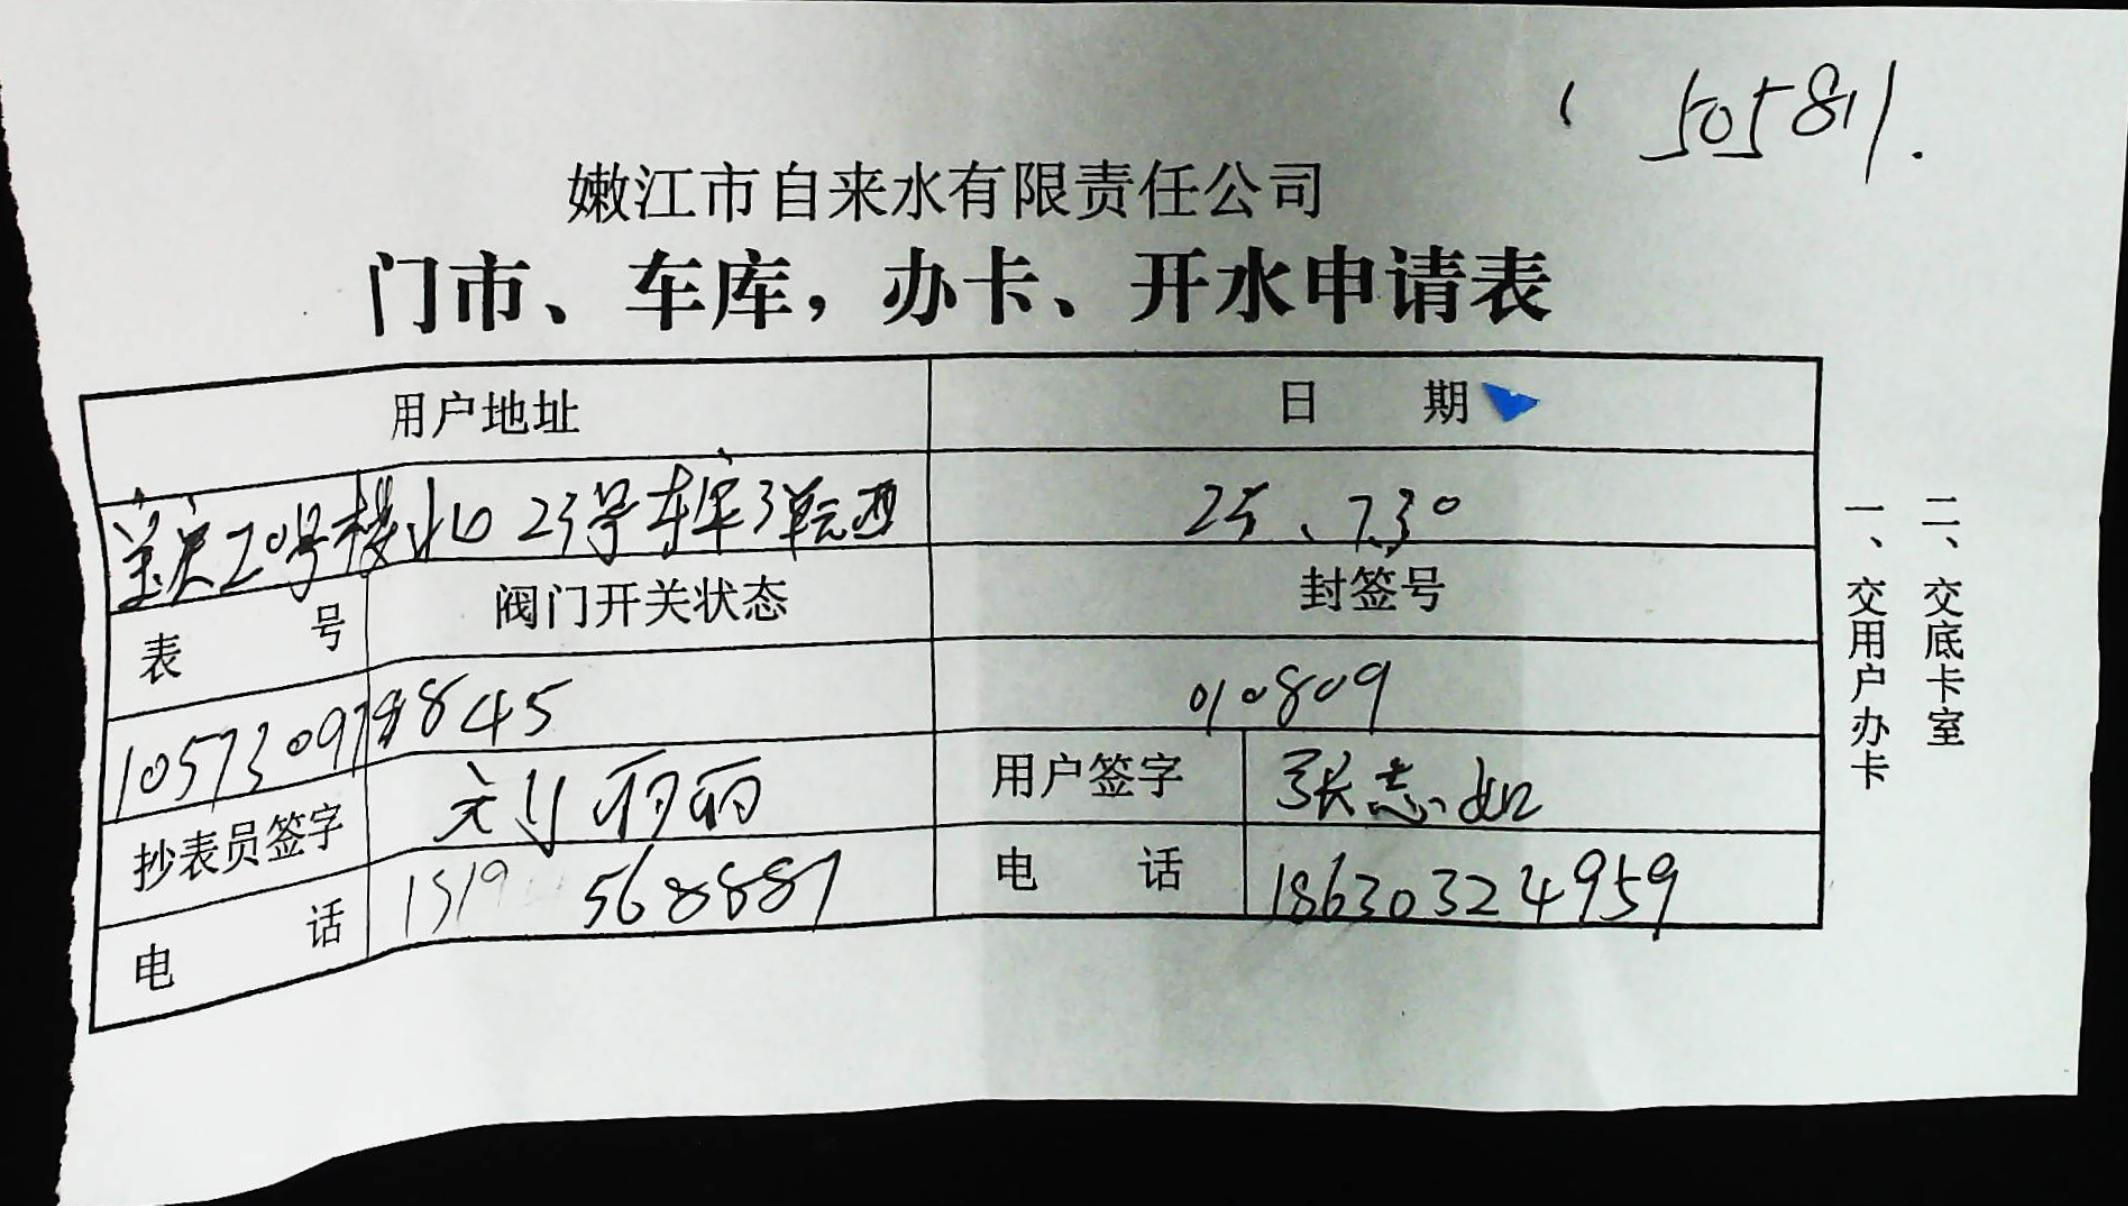 505811.
嫩江市自来水有限责任公司
门市、车库，办卡、开水申请表
用户地址 日期
20号楼北 23号车库3单元西 25、7.30
表号 阀门开关状态 封签号
845 010809
抄表员签字 刘丽丽 用户签字 张志如
电话 1519 568887 电话 18630324959
一、交用户办卡
二、交底卡室